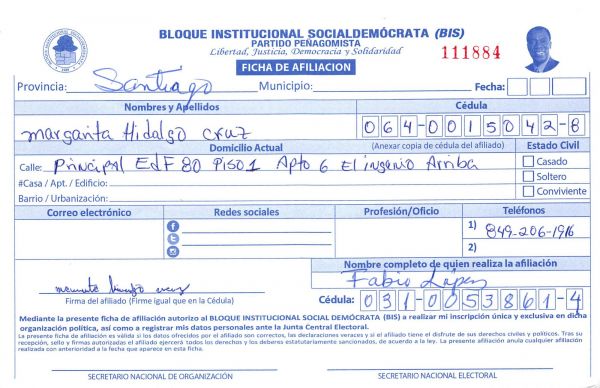 BLOQUE INSTITUCIONAL SOCIALDEMÓCRATA (BIS)
PARTIDO PEÑAGOMISTA
Libertad, Justicia, Democracia y Solidaridad
111884
FICHA DE AFILIACION
Provincia: Santiago Municipio: Fecha:
Nombres y Apellidos Cédula
Margarita Hidalgo Cruz 064-0015042-8
Domicilio Actual (Anexar copia de cédula del afiliado) Estado Civil
Calle: Principal Edf 80 Piso 1 Apto 6 El ingenio Arriba Casado
#Casa / Apt. / Edificio: Soltero
Barrio / Urbanización: Conviviente
Correo electrónico Redes sociales Profesión/Oficio Teléfonos
1) 849-206-1916
2)
Nombre completo de quien realiza la afiliación
Fabio López
Firma del afiliado (Firme igual que en la Cédula) Cédula: 031-0053861-4
Mediante la presente ficha de afiliación autorizo al BLOQUE INSTITUCIONAL SOCIAL DEMÓCRATA (BIS) a realizar mi inscripción única y exclusiva en dicha
organización política, así como a registrar mis datos personales ante la Junta Central Electoral.
La presente ficha de afiliación es válida si los datos ofrecidos por el afiliado son correctos, las declaraciones veraces y si el afiliado tiene el disfrute de sus derechos civiles y políticos. Tras su
recepción, sello y firmas autorizadas el afiliado ejercerá todos los derechos y los deberes estatutariamente sancionados, de acuerdo a la ley. La presente afiliación anula cualquier afiliación
realizada con anterioridad a la fecha que aparece en esta ficha.
SECRETARIO NACIONAL DE ORGANIZACIÓN SECRETARIO NACIONAL ELECTORAL